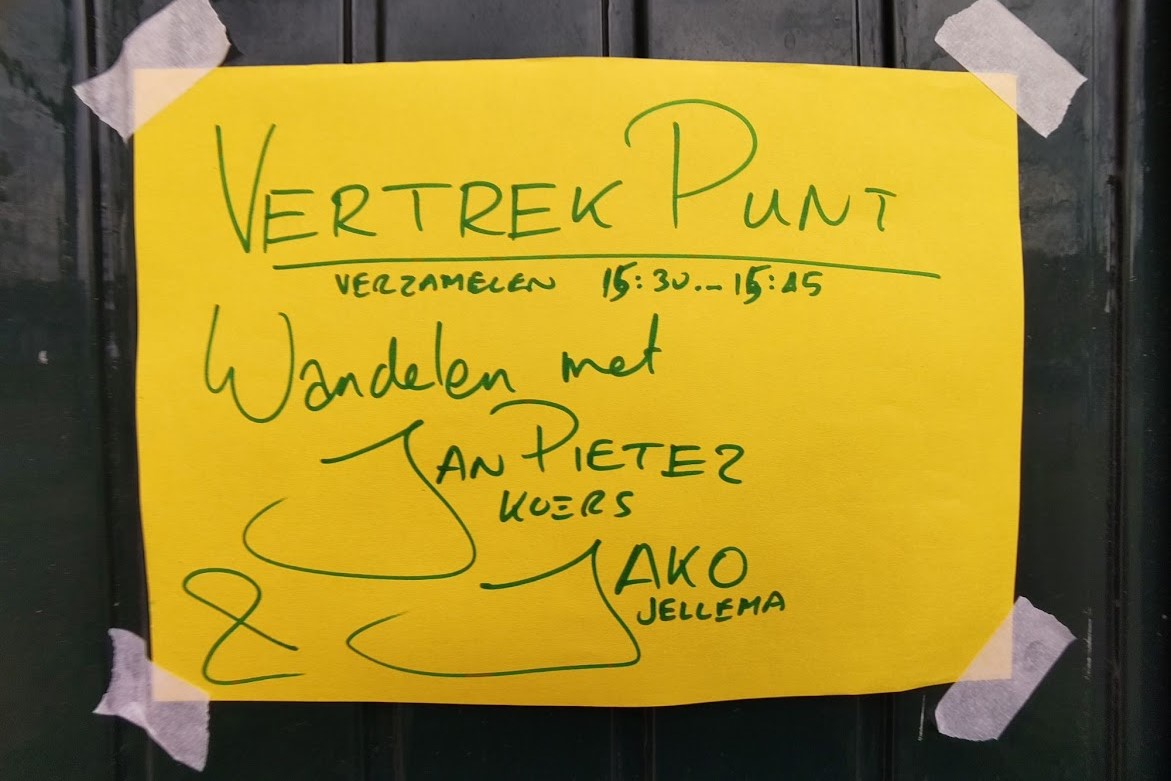 VERTREK PUNT
VERZAMELEN 15:30 - 15:45
Wandelen met
JAN PIETER
KOERS
& JAKO
JELLEMA